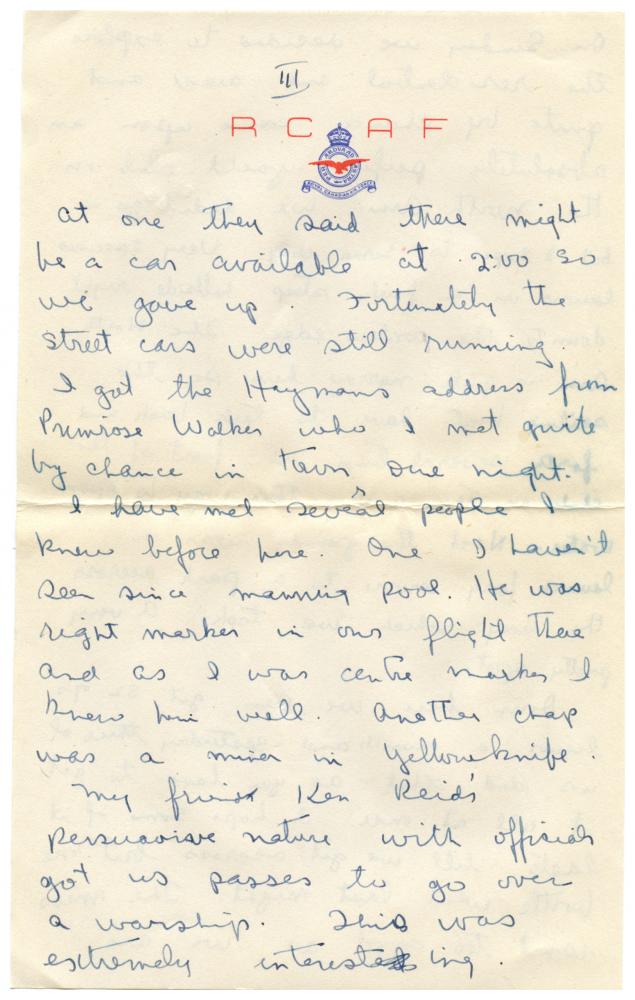 III
R C A F
ROYAL CANADIAN AIR FORCE
at one they said there might
be a car available at 2:00 so
we gave up. Fortunately the
street cars were still running.
I got the Haymans address from
Primrose Walker who I met quite
by chance in town, one night.
I have met several people I
knew before here. One I haven't
seen since manning pool. He was
right marker in our flight there
and as I was centre marker I
knew him well. Another chap
was a miner in Yellowknife.
My friend Ken Reid's
persuasive nature with officials
got us passes to go over
a warship. This was
extremely interesting.